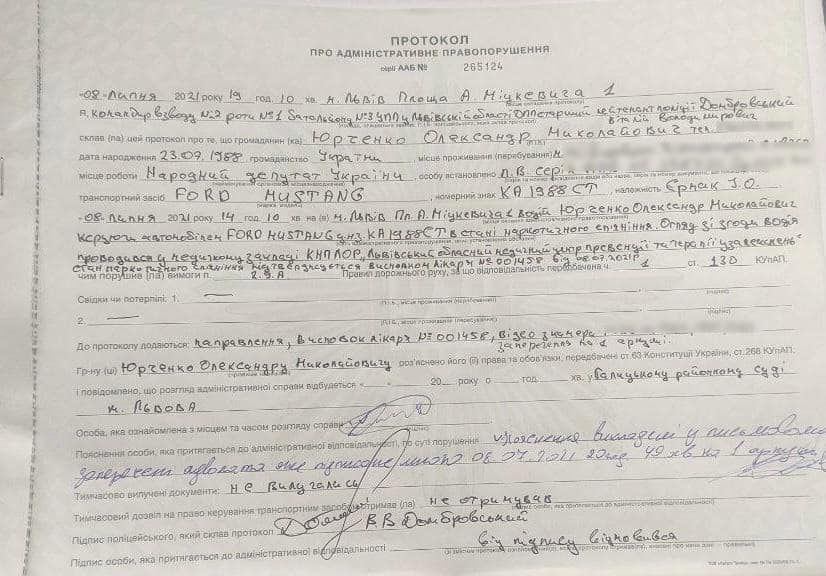 ПРОТОКОЛ
ПРО АДМІНІСТРАТИВНЕ ПРАВОПОРУШЕННЯ
серії ААБ № 265124
«08» липня 2021 року 19 год. 10 хв. м. Львів Площа А. Міцкевича 1
Я, командир взводу №2 роти №1 батальйону №3 УПП у Львівській області ДПП старший лейтенант поліції Домбровський
Віталій Володимирович
склав (ла) цей протокол про те, що громадянин (ка) Юрченко Олександр Миколайович тел.
дата народження 23.07.1988 громадянство України, місце проживання (перебування) м
місце роботи Народний депутат України, особу встановлено П.В. серія
транспортний засіб FORD MUSTANG, номерний знак КА1988СТ, належність Єрмак І.О.
«08» липня 2021 року 14 год. 10 хв на (в) м. Львів Пл. А. Міцкевича 1 водій Юрченко Олександр Миколайович
керував автомобілем FORD MUSTANG днз. КА1988СТ в стані наркотичного сп'яніння. Огляд зі згоди водія
проводився у медичному закладі КНП ЛОР „Львівський обласний медичний центр превенції та терапії узалежнень"
стан наркотичного сп'яніння підтверджується висновком лікаря №001458 від 08.07.2021р
чим порушив (ла) вимоги п. 2.9.А Правил дорожнього руху, за що відповідальність передбачена ч. 1 ст. 130 КУпАП.
Свідки чи потерпілі: 1. —
2. —
До протоколу додаються: направлення, висновок лікаря №001458, відео з камери
заперечення на 1 аркуші.
Гр-ну (ці) Юрченко Олександру Миколайовичу роз'яснено його (її) права та обов'язки, передбачені ст.63 Конституції України, ст.268 КУпАП,
і повідомлено, що розгляд адміністративної справи відбудеться « » 20 року о год. хв. у Галицькому районному суді
м. Львова
Особа, яка ознайомлена з місцем та часом розгляду справи
Пояснення особи, яка притягається до адміністративної відповідальності, по суті порушення Пояснення викладені у письмовому
запереченні адвоката 08.07.2021 20 год 49 хв на 1 аркуші
Тимчасово вилучені документи: не вилучались
Тимчасовий дозвіл на право керування транспортним засобом отримав (ла) не отримував
Підпис поліцейського, який склав протокол В.В Домбровський
Підпис особи, яка притягається до адміністративної відповідальності від підпису відмовився